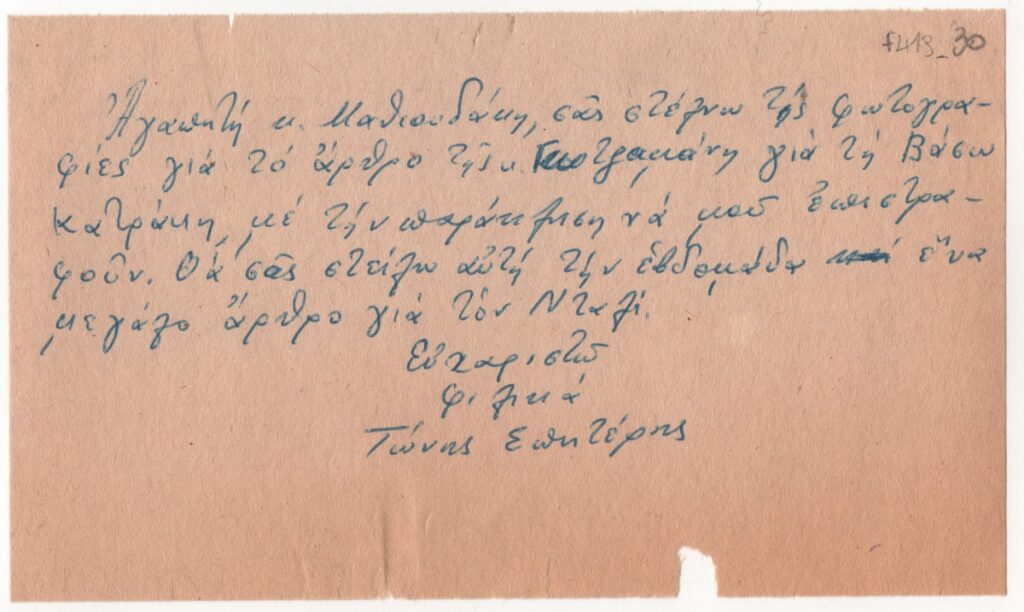 f419_30
Ἀγαπητή κ. Μαθιουδάκη, σᾶς στέλνω τὴς φωτογρα-
φίες γιά τό ἄρθρο τῆς κ. γιά τή Βάσω
Κατράκη, μέ τήν παράκληση νά μοῦ ἐπιστρα-
φοῦν. Θά σᾶς στείλω αὐτή τήν ἑβδομάδα ἕνα
μεγάλο ἄρθρο γιά τόν Νταλί.
Εὐχαριστῶ
Φιλικά
Τώνης Σπητέρης